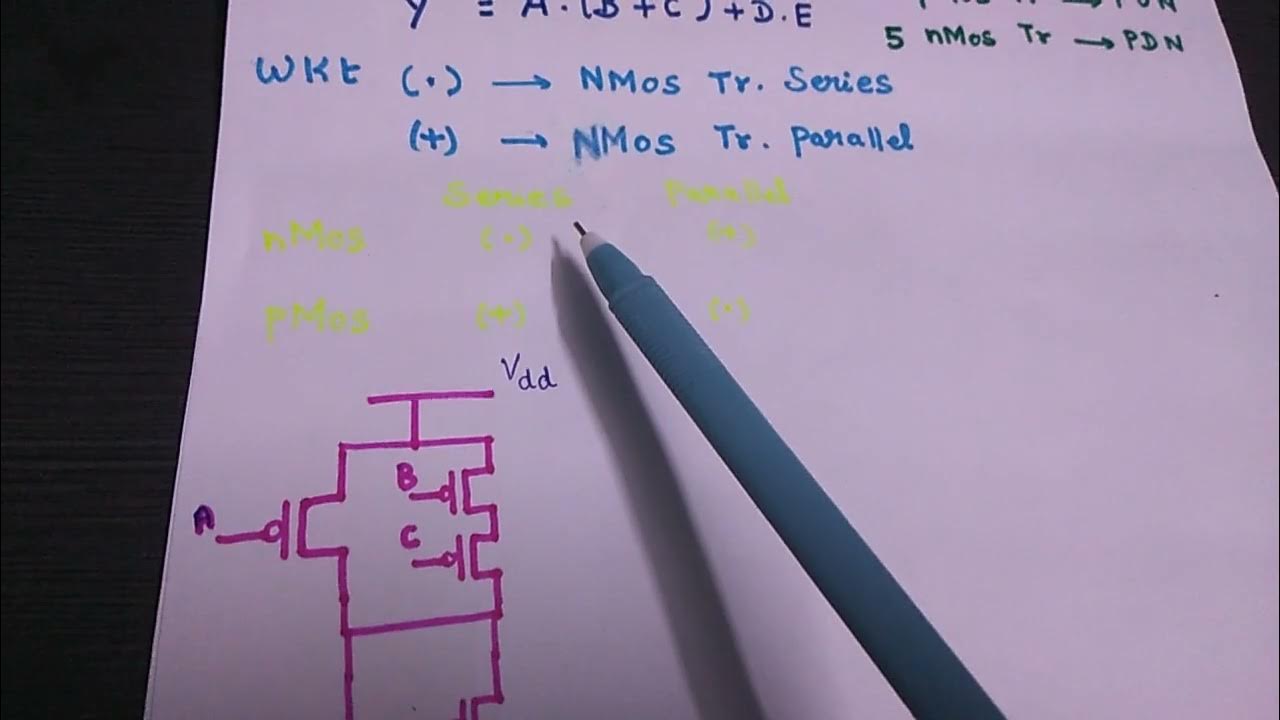 Y = A.(B+C)+D.E
5 nMos Tr → PDN
WKt (.) → NMos Tr. Series
(+) → NMos Tr. Parallel
Series Parallel
nMos (.) (+)
pMos (+) (.)
Vdd
B
A
C